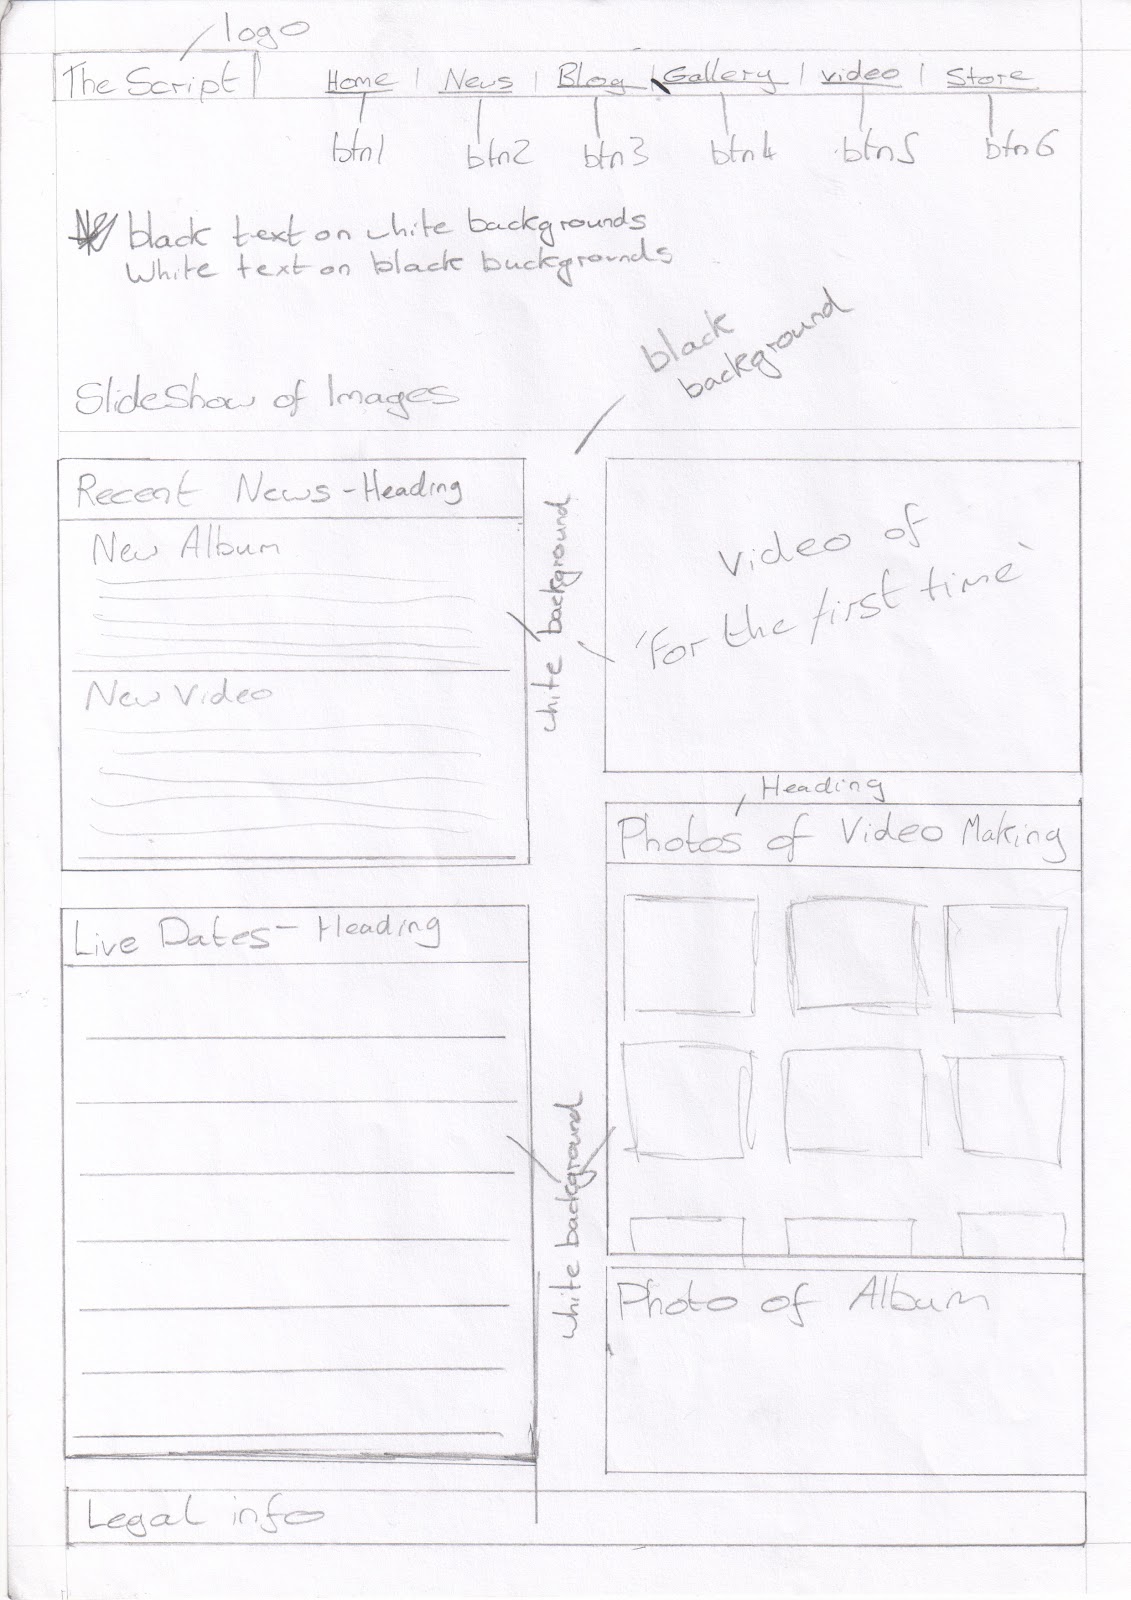 logo
The Script
Home | News | Blog | Gallery | video | Store
btn1 btn2 btn3 btn4 btn5 btn6
black text on white backgrounds
White text on black buckgrounds
black
background
SlideShow of Images
Recent News - Heading
New Album
New Video
white background
video of
'For the first time'
Heading
Photos of Video Making
Live Dates - Heading
white background
Photo of Album
Legal info